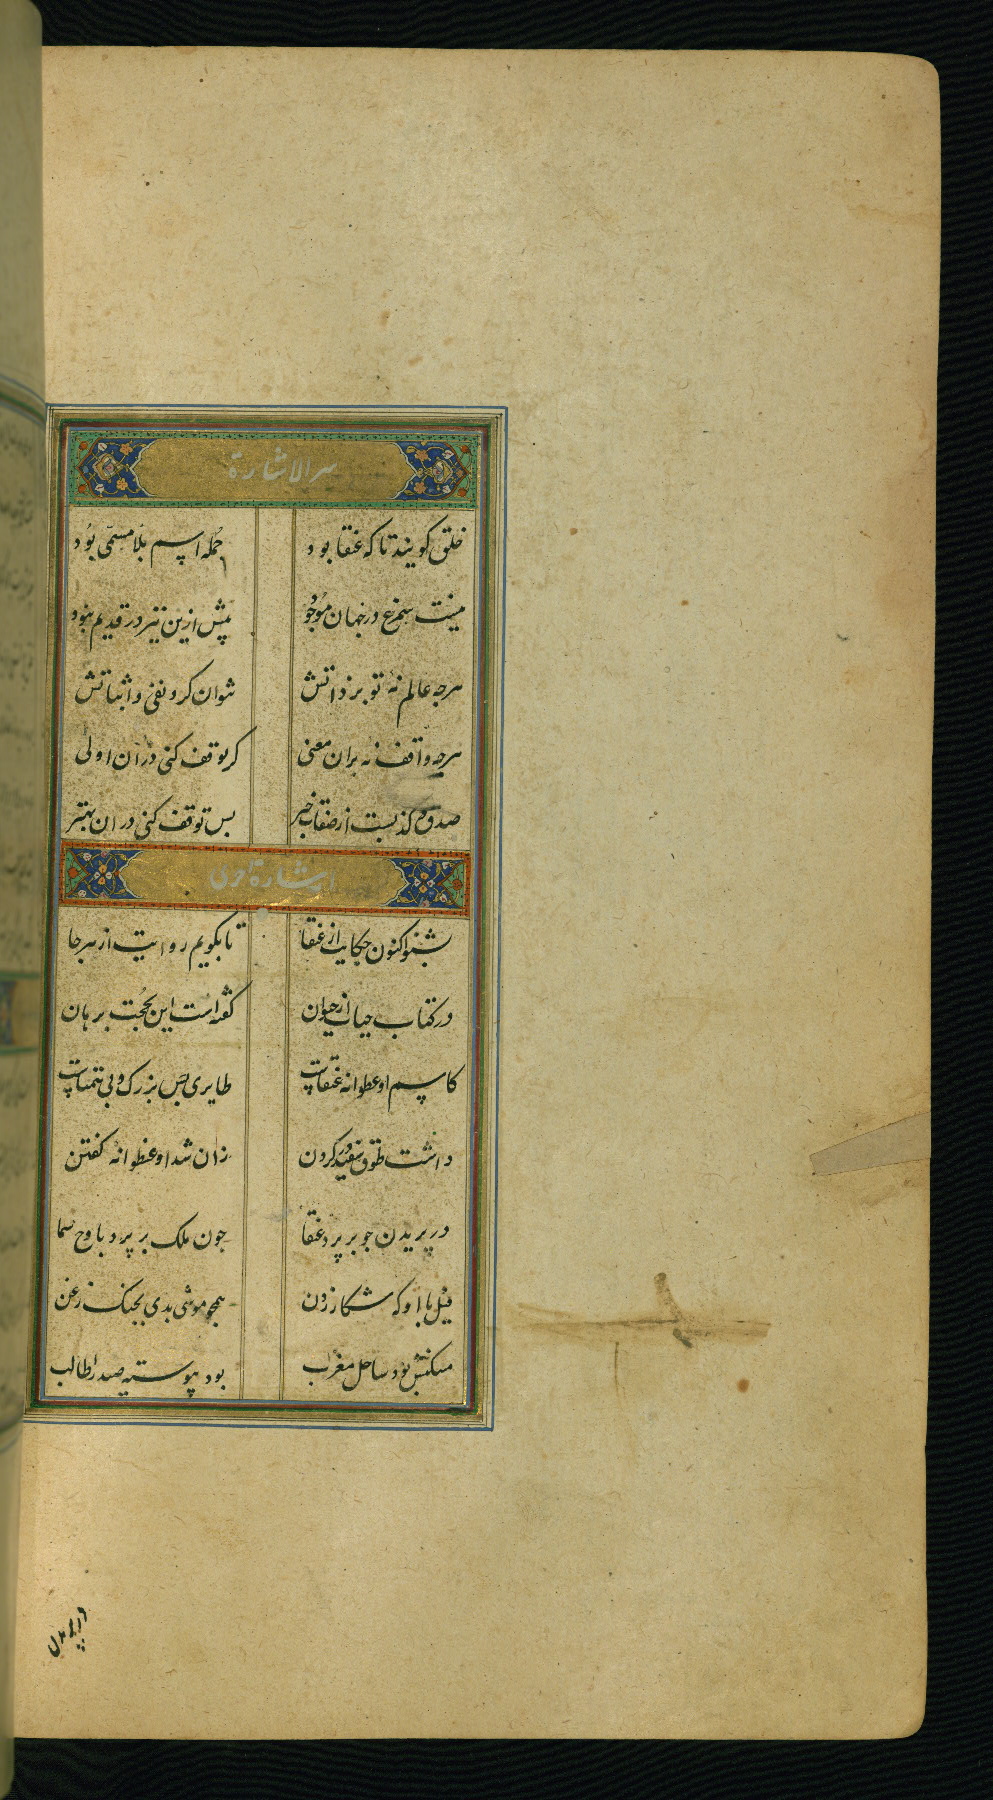 سر الاشارة
خلق کویند تا که عنقا بود جمله اسم بلا مسمی بود
نیست سیمرغ در جهان موجود پیش ازین نیز در قدیم نبود
هرچه عالم نه تو بر ذاتش نتوان کرد نفی و اثباتش
هرچه واقف نه بران معنی کر توقف کنی در آن اولی
صدق و کذبست از صفات خبر بس توقف کنی در ان بهتر
اشارة اخری
بشنو اکنون حکایت از عنقا تا بگویم روایت از هر جا
در کتاب حیات از حیوان کفته است این بحجت برهان
کاسم او عطوانه عنقاست طایری بس بزرک وبی همتاست
داشت طوق سفید کردن زان شد او عنطوانه کفتن
در پریدن جو بر پرد عنقا جون ملک بر پرد باوج سما
فیل با او که شکار زدن همجو موشی بدی بجنک زغن
مسکنش بود ساحل مغرب بود پیوسته صید را طالب
در پریدن